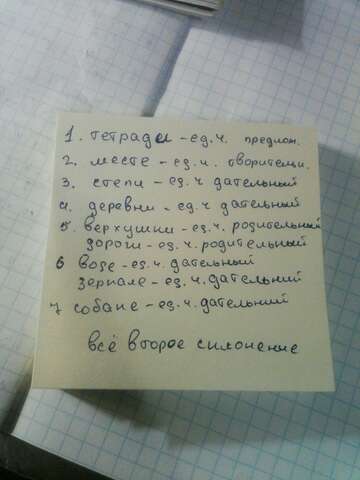 1. тетради - ед.ч. предлож.
2. месте - ед.ч. творительн.
3. степи - ед.ч дательный
4. деревни - ед.ч дательный
5. верхушки - ед.ч. родительный
дороги - ед.ч. родительный
6 воде - ед.ч. дательный
зеркале - ед.ч. дательний
7 собаке - ед.ч. дательний
всё второе склонение